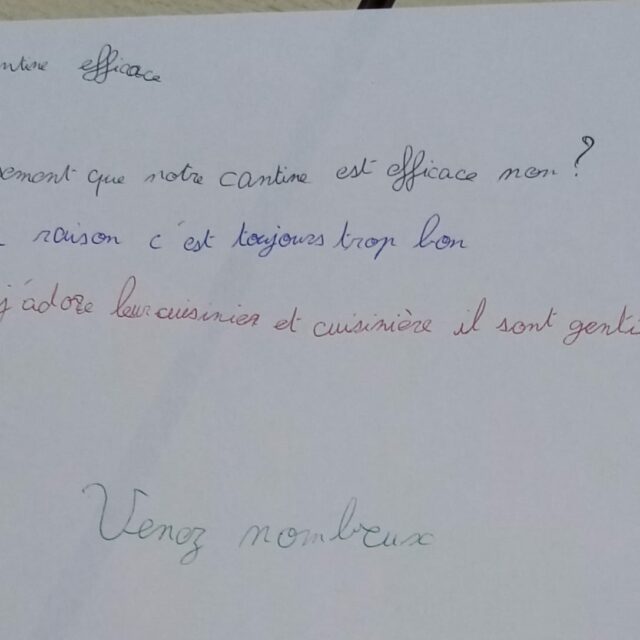 ntine efficace
ement que notre cantine est efficace non ?
raison c'est toujours trop bon
j'adore leur cuisinier et cuisinière il sont genti
Venez nombreux